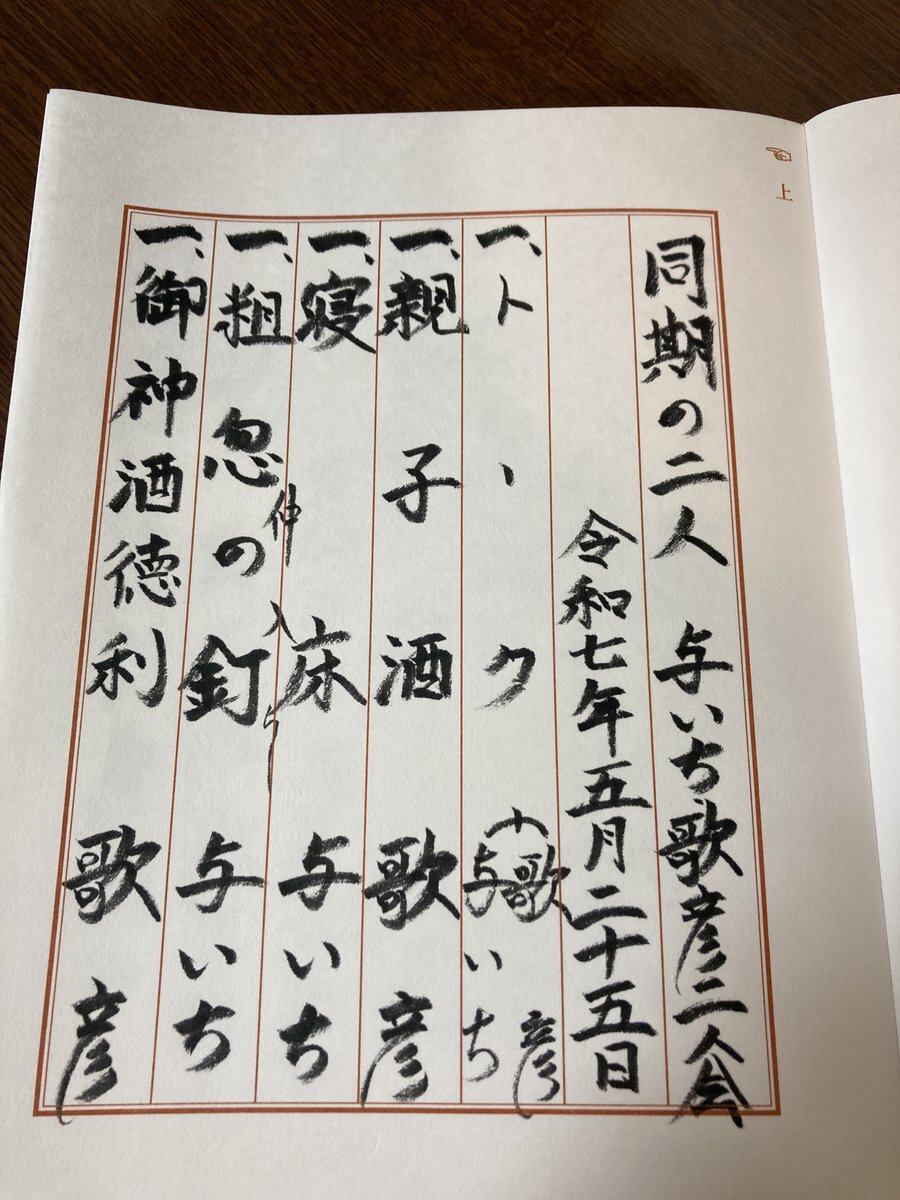 上
同期の二人 与いち歌彦二人会
令和七年五月二十五日
一、トーク 歌彦 与いち
一、親子酒 歌彦
一、寝床 与いち
仲入り
一、粗忽の釘 与いち
一、御神酒徳利 歌彦